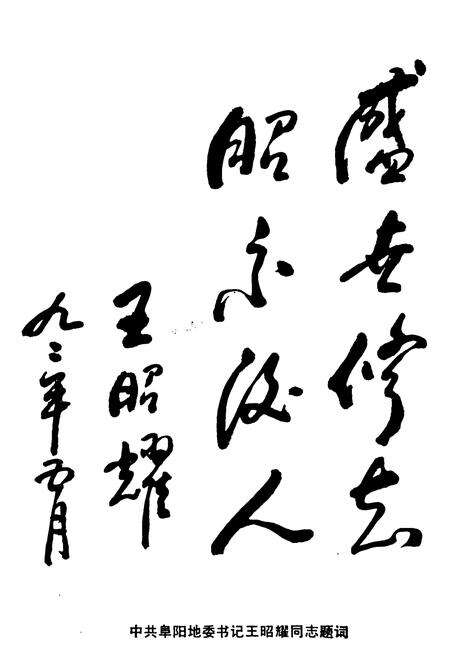 盛世修志
昭示后人
王昭耀
九二年五月
中共阜阳地委书记王昭耀同志题词